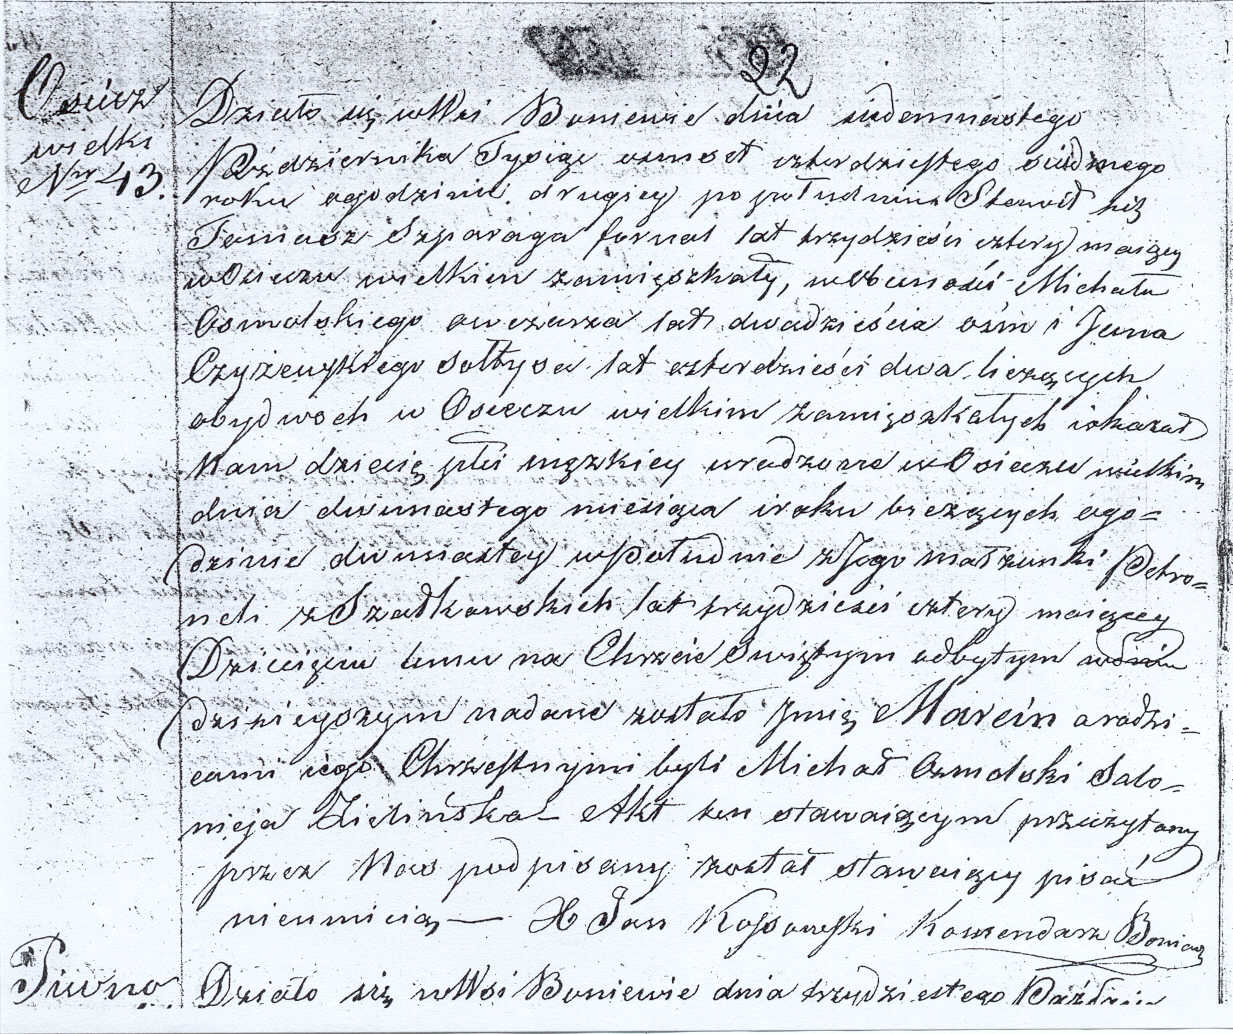 22
Osiecz
wielki
Nr 43.
Działo się w Wsi Boniewie dnia siedemnastego
Października Tysiąc osmset czterdziestego siódmego
roku o godzinie drugiey po południu Stawił się
Tomasz Szparaga fornal lat trzydzieści cztery maiący
w Osieczu wielkim zamięszkały, w obecności Michała
Osmolskiego owczarza lat dwadzieścia ośm i Jana
Czyżewskiego sołtysa lat czterdzieści dwa liczących
obydwoch w Osieczu wielkim zamięszkałych i okazał
Nam dziecię płci męzkiey urodzone w Osieczu wielkim
dnia dwunastego miesiąca i roku bieżących o go=
dzinie dwunastey w południe z Jego małżonki Petro=
neli z Szadkowskich lat trzydzieści cztery maiącey
Dziecięciu temu na Chrzcie Świętym odbytym w dniu
dzisieyszym nadane zostało Jmię Marcin a rodzi=
cami iego Chrzestnymi byli Michał Osmolski Salo=
meja Zielińska — Akt ten stawaiącym przeczytany
przez Nas podpisany został stawaiący pisać
nieumieią — X Jan Kossowski Komendarz Boniew
Piwno
Działo się w Wsi Boniewie dnia trzydziestego Paździer